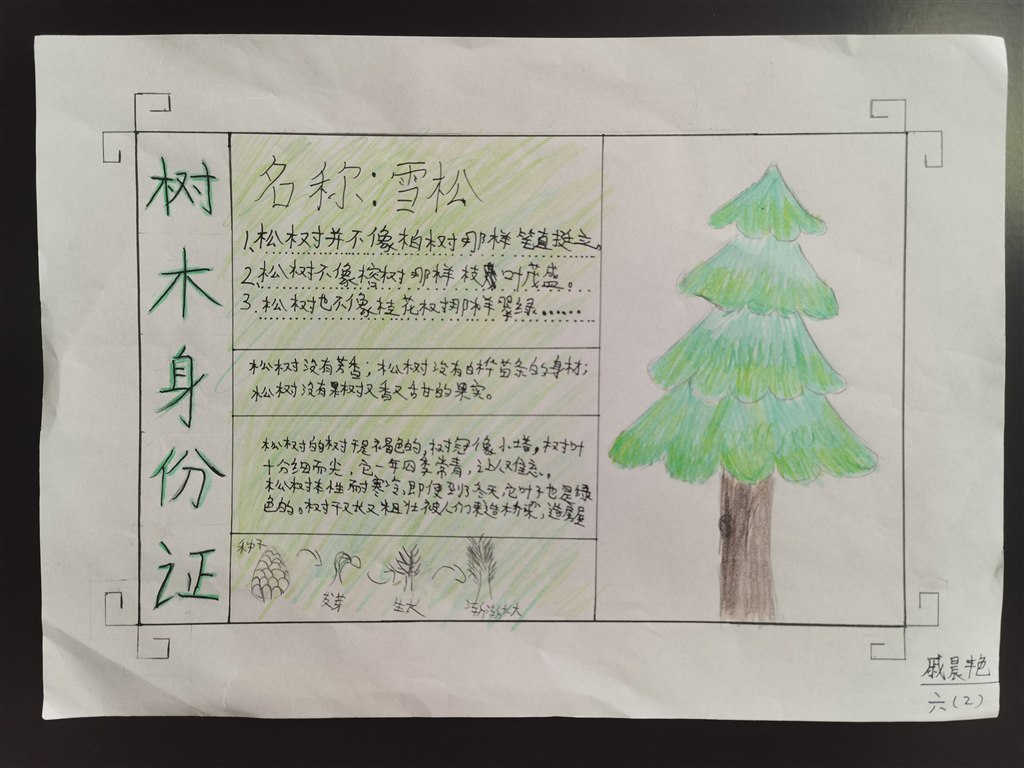 树木身份证
名称:雪松
1.松树并不像柏树那样笔直挺立。
2.松树不像榕树那样枝叶茂盛。
3.松树也不像桂花树那样翠绿……
松树没有芳香;松树没有白桦苗条的身材;
松树没有果树又香又甘的果实。
松树的树干是褐色的,树冠像小塔,树叶
十分细而尖,它一年四季常青,让人
松树本性耐寒冷,即便到了冬天,它叶子也是绿
色的。树干又长又粗壮被人们造桥梁,造房屋
种子
发芽
生长
渐渐长大
戚晨
六(2)